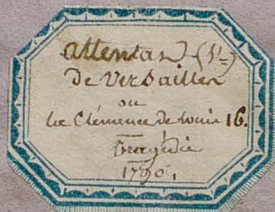 attentat (l'=)
de Versailles
ou
La Clémence de Louis 16.
Tragédie
1790.